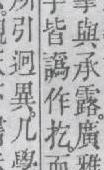 與承露廣雅
皆譌作扢而
所引迥異凡學